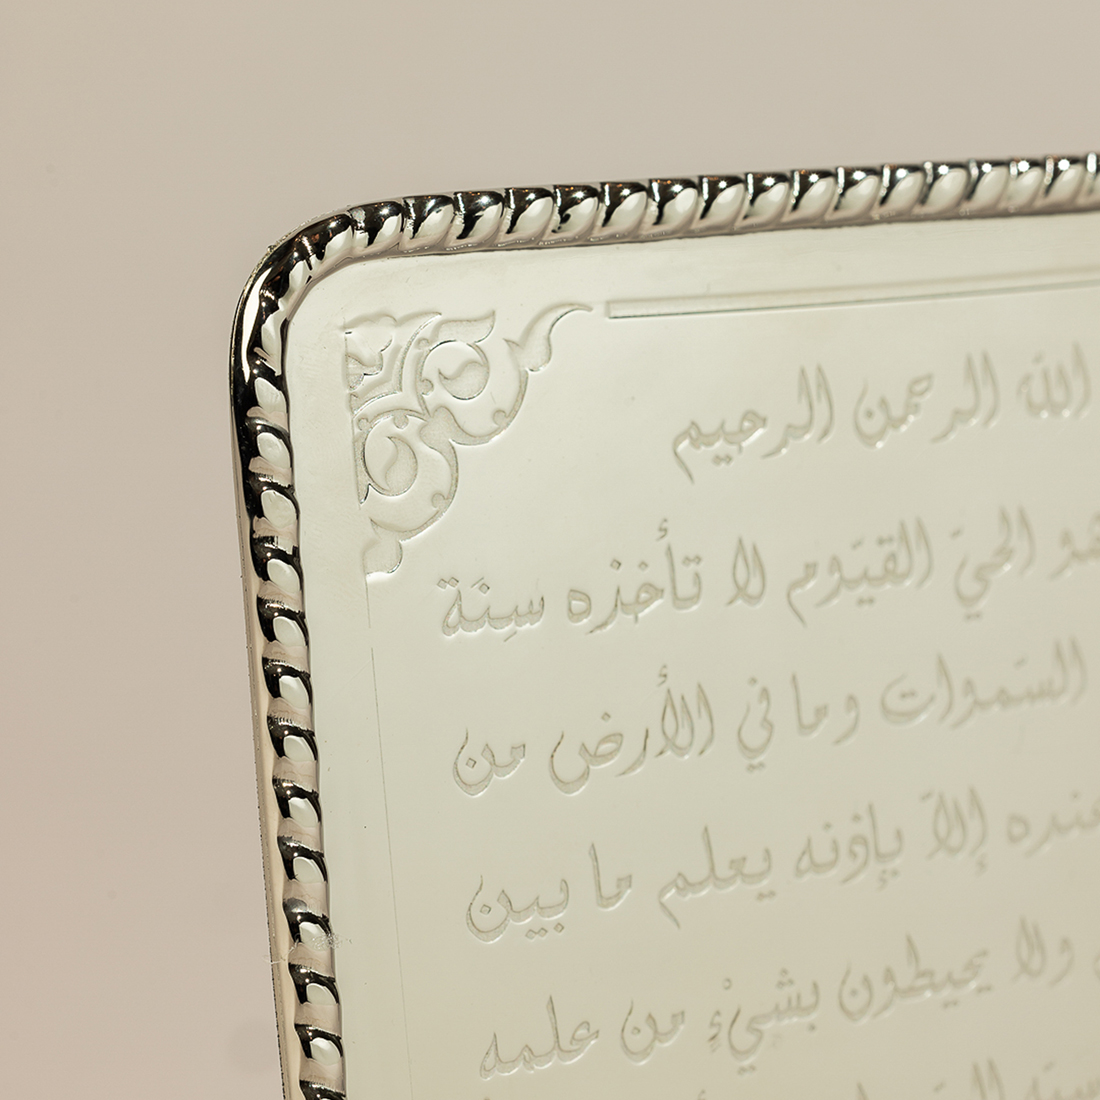 الله الرحمن الرحيم
هو الحيّ القيّوم لا تأخذه سِنَة
السّموات وما في الأرض من
عنده إلاّ بإذنه يعلم ما بين
ولا يحيطون بشيْءٍ من علمه